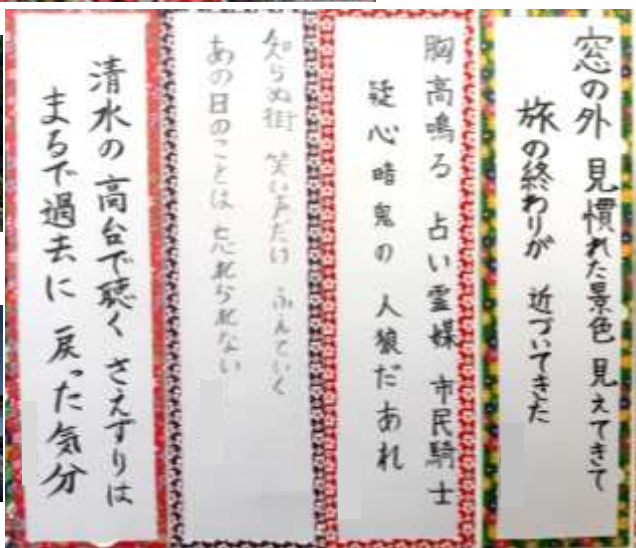 窓の外 見慣れた景色 見えてきて
旅の終わりが 近づいてきた
胸高鳴る 占い霊媒 市民騎士
疑心暗鬼の 人狼だあれ
知らぬ街 笑い声だけ ふえていく
あの日のことは 忘れられない
清水の 高台で聴く さえずりは
まるで過去に 戻った気分